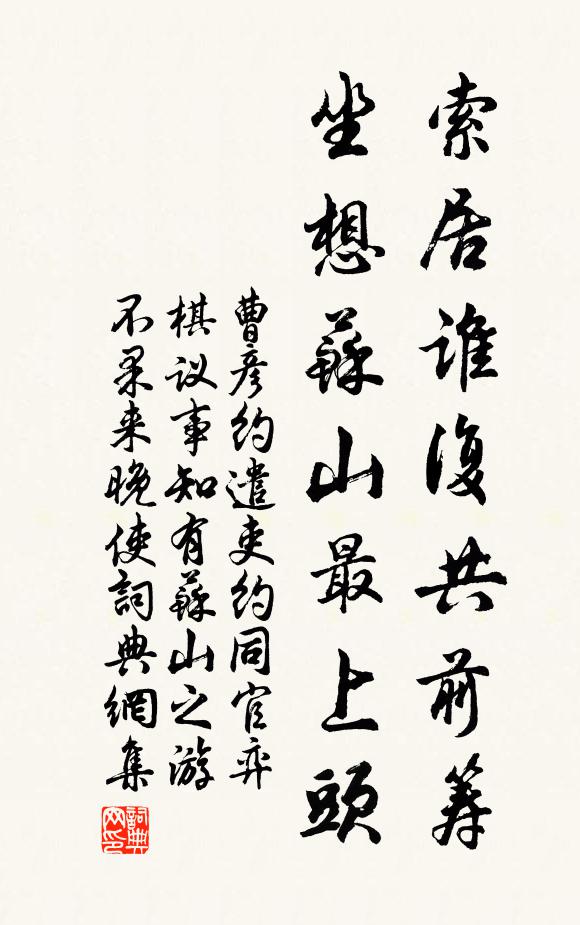 索居谁復共前筹
坐想蘇山最上頭
曹彦約遣吏約同官弈
棋议事知有蘇山之游
不果来晚使詞典網集
詞典
网印